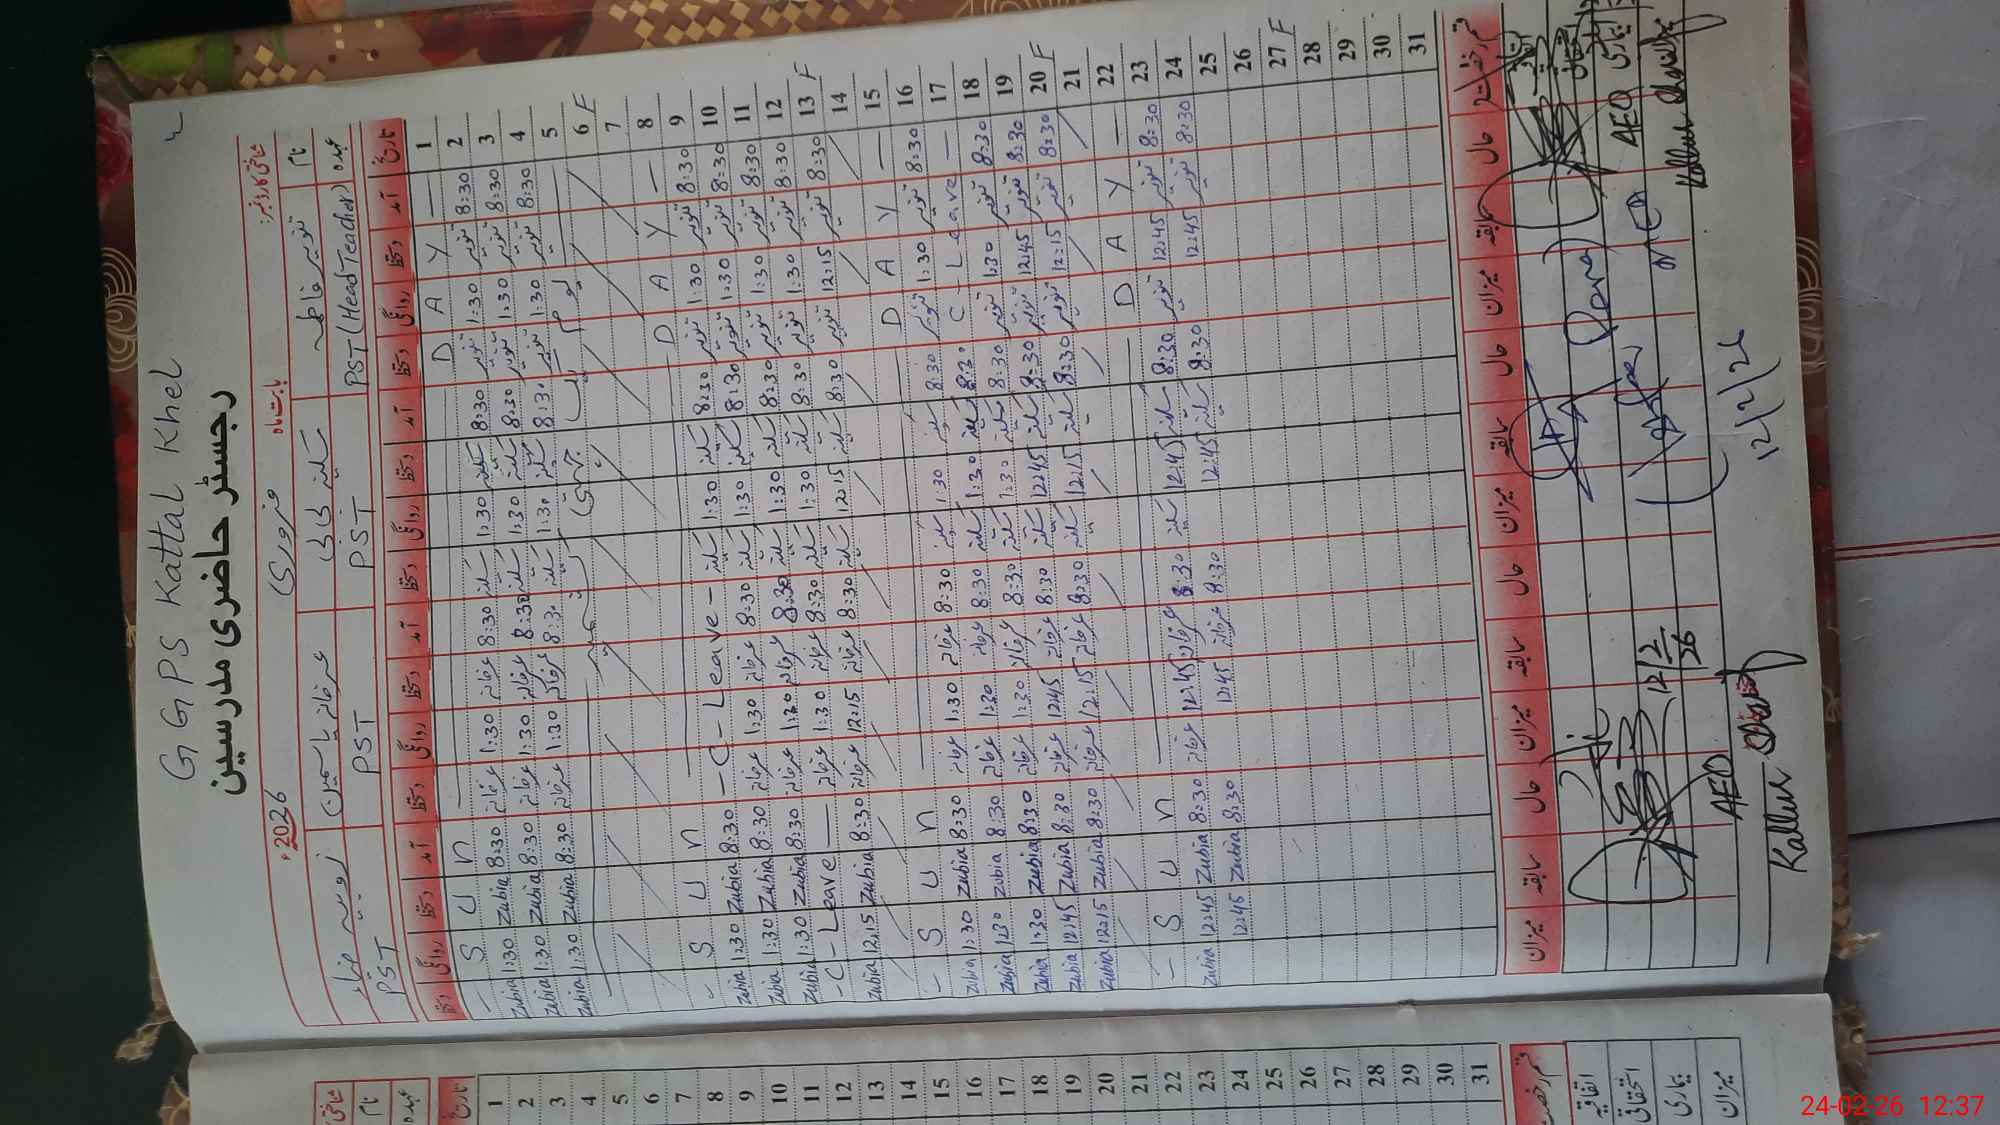 GGPS Kattal Khel
رجسٹر حاضری مدرسین
بابت ماہ فروری 2026
شناختی کارڈ نمبر:
نام تنویر فاطمہ سکینہ بی بی عرفانہ یاسمین زوبیہ
عہدہ PST (Head Teacher) PST PST PST
تاریخ آمد دستخط روانگی دستخط آمد دستخط روانگی دستخط آمد دستخط روانگی دستخط آمد دستخط روانگی دستخط
1 — S U N D A Y —
2 8:30 تنویر 1:30 تنویر 8:30 سکینہ 1:30 سکینہ 8:30 عرفانہ 1:30 عرفانہ 8:30 Zubia 1:30 Zubia
3 8:30 تنویر 1:30 تنویر 8:30 سکینہ 1:30 سکینہ 8:30 عرفانہ 1:30 عرفانہ 8:30 Zubia 1:30 Zubia
4 8:30 تنویر 1:30 تنویر 8:30 سکینہ 1:30 سکینہ 8:30 عرفانہ 1:30 عرفانہ 8:30 Zubia 1:30 Zubia
5 یوم یکجہتی کشمیر
6 F
7
8 — S U N D A Y —
9 8:30 تنویر 1:30 تنویر 8:30 سکینہ 1:30 سکینہ – C – Leave – 8:30 Zubia 1:30 Zubia
10 8:30 تنویر 1:30 تنویر 8:30 سکینہ 1:30 سکینہ 8:30 عرفانہ 1:30 عرفانہ 8:30 Zubia 1:30 Zubia
11 8:30 تنویر 1:30 تنویر 8:30 سکینہ 1:30 سکینہ 8:30 عرفانہ 1:30 عرفانہ 8:30 Zubia 1:30 Zubia
12 8:30 تنویر 1:30 تنویر 8:30 سکینہ 1:30 سکینہ 8:30 عرفانہ 1:30 عرفانہ – C – Leave —
13 F 8:30 تنویر 12:15 تنویر 8:30 سکینہ 12:15 سکینہ 8:30 عرفانہ 12:15 عرفانہ 8:30 Zubia 12:15 Zubia
14
15 — S U N D A Y —
16 8:30 تنویر 1:30 تنویر 8:30 سکینہ 1:30 سکینہ 8:30 عرفانہ 1:30 عرفانہ 8:30 Zubia 1:30 Zubia
17 C – Leave — 8:30 سکینہ 1:30 سکینہ 8:30 عرفانہ 1:30 عرفانہ 8:30 Zubia 1:30 Zubia
18 8:30 تنویر 1:30 تنویر 8:30 سکینہ 1:30 سکینہ 8:30 عرفانہ 1:30 عرفانہ 8:30 Zubia 1:30 Zubia
19 8:30 تنویر 12:45 تنویر 8:30 سکینہ 12:45 سکینہ 8:30 عرفانہ 12:45 عرفانہ 8:30 Zubia 12:45 Zubia
20 F 8:30 تنویر 12:15 تنویر 8:30 سکینہ 12:15 سکینہ 8:30 عرفانہ 12:15 عرفانہ 8:30 Zubia 12:15 Zubia
21
22 — S U N D A Y —
23 8:30 تنویر 12:45 تنویر 8:30 سکینہ 12:45 سکینہ 8:30 عرفانہ 12:45 عرفانہ 8:30 Zubia 12:45 Zubia
24 8:30 تنویر 12:45 8:30 سکینہ 12:45 8:30 عرفانہ 12:45 8:30 Zubia 12:45
25
26
27 F
28
29
30
31
قسم رخصت حال سابقہ میزان حال سابقہ میزان حال سابقہ میزان حال سابقہ میزان
اتفاقیہ
استحقاقی
بیماری
AEO
12/2/26
12/2/26
AEO
Kallur
شناختی
نام
عہدہ
تاریخ
1
2
3
4
5
6
7
8
9
10
11
12
13
14
15
16
17
18
19
20
21
22
23
24
25
26
27
28
29
30
31
قسم رخصت
اتفاقیہ
استحقاقی
بیماری
میزان
24-02-26 12:37